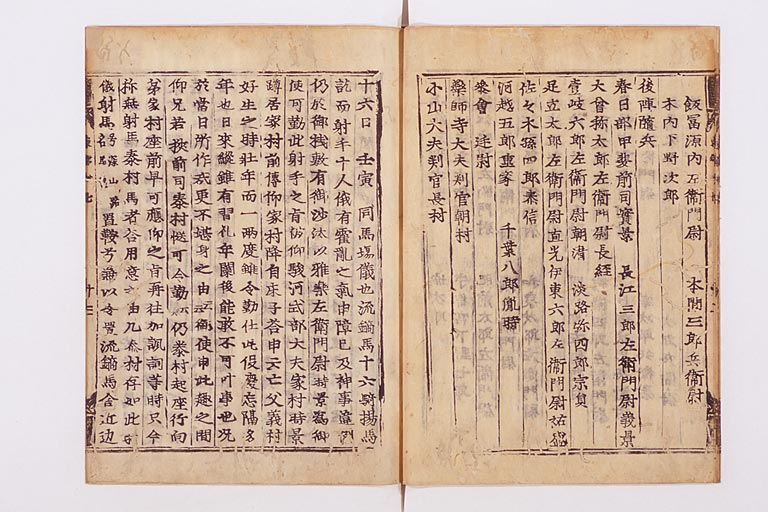 飯冨源内左衛門尉　本間三郎兵衛尉
木内下野次郎
後陣隨兵
春日部甲斐前司實景　長江三郎左衛門尉義景
大曾祢太郎左衛門尉長経
壹岐六郎左衛門尉朝清　淡路弥四郎宗員
足立太郎左衛門尉直光伊東六郎左衛門尉祐盛
佐々木孫四郎泰信
河越五郎重家　千葉八郎胤時
参會　廷尉
藥師寺大夫判官朝村
小山大夫判官長村
十六日　壬寅　同馬塲儀也流鏑馬十六騎揚馬
訖而射手一人俄有霍乱之氣申障已及神事違例
仍於御棧敷有御沙汰以雅樂左衛門尉時景爲御
使可勤此射手之旨被仰駿河式部大夫家村時景
蹲居家村前傳仰家村降自床子荅申云亡父義村
好生之時壮年而一兩度雖令勤仕此役憂忘隔多
年也日來縦雖有習礼年闌後能敢不可叶事也况
於當日所作哉更不堪身之由云々御使申此趣之間
仰兄若狹前司泰村慥可令勤云々仍泰村起座行向
弟家村座前早可應仰之旨再往加諷詞等時只今
称無射馬泰村馬者令用意之由凡泰村存如此
儀射馬号深山路名馬也置鞍兮兼以令置流鏑馬舎近边